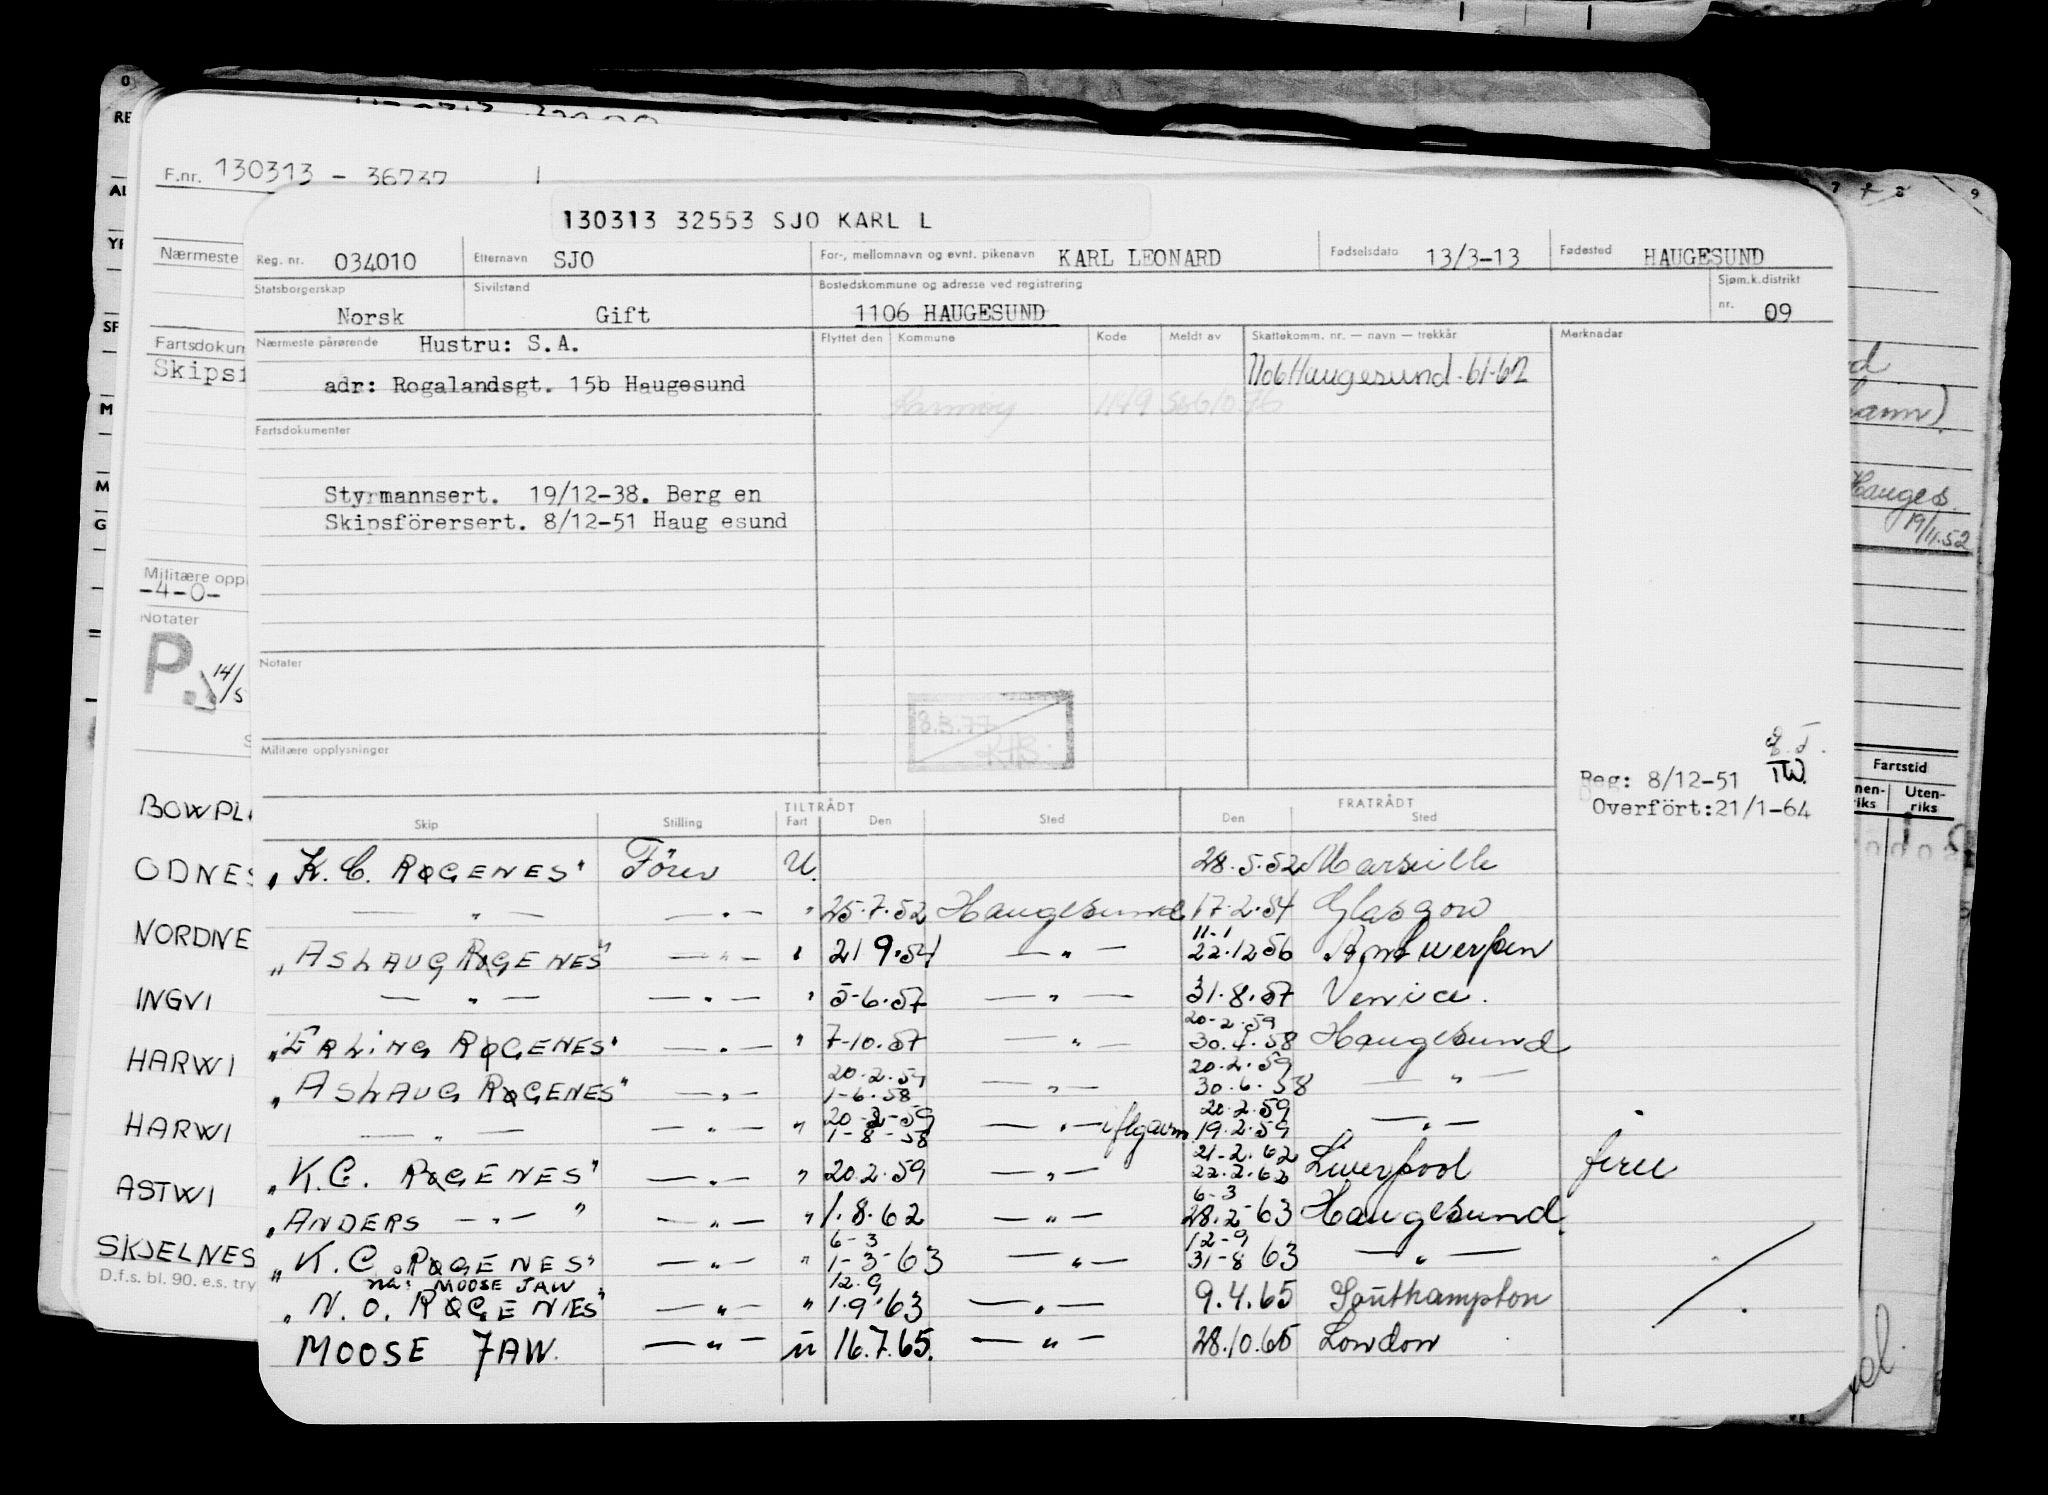 F.nr. 130313 - 36737
130313 32553 SJO KARL L
Nærmeste
Reg. nr. 034010 Etternavn SJO For-, mellomnavn og evnt. pikenavn KARL LEONARD Fødselsdato 13/3-13 Fødested HAUGESUND
Statsborgerskap Norsk Sivilstand Gift Bostedskommune og adresse ved registrering 1106 HAUGESUND Sjøm.k.distrikt nr. 09
Nærmeste pårørende Hustru: S.A. Flyttet den Kommune Kode Meldt av Skattekomm. nr. — navn — trekkår Merknadar
adr: Rogalandsgt. 15b Haugesund 1106 Haugesund. 61-62
Karmøy 1149
Fartsdokumenter
Styrmannsert. 19/12-38. Berg en
Skipsförersert. 8/12-51 Haug esund
Notater
8.3.77
Militære opplysninger
Reg: 8/12-51
Overfört:21/1-64
TILTRÅDT FRATRÅDT
Skip Stilling Fart Den Sted Den Sted
"K. C. ROGENES" Förer U. 28.5.52 Marseille
— " — — " — " 25.7.52 Haugesund 17.2.54 Glasgow
11-1
"ASLAUG ROGENES" — " — " 21 9.54 — " — 22.12 56 Antwerpen
— " — — " — " 5-6.57 — " — 31.8.57 Venice.
20-2.59
"ERLING ROGENES" — " — " 7-10.57 — " — 30.4.58 Haugesund
20.2.59 20.2.59
"ASLAUG ROGENES" — " — 1-6.58 — " — 30.6.58 — " —
20-2-59 20.2.59
— " — — " — " 1-8-58 — " — 19.2.59 — " —
21-2.62
"K.C. ROGENES" — " — " 20.2.59 — " — 22.2.62 Liverpool ferie
6-3
"ANDERS — " — " — " — " 1.8.62 — " — 28.2-63 Haugesund
6-3 12-9
"K.C. ROGENES" — " — " 1-3-63 — " — 31-8 63 — " —
na: MOOSE JAW 12.9
"N.O. ROGENES" — " — " 1.9.63 — " — 9.4.65 Southampton
MOOSE JAW. — " — " 16.7.65. — " — 28.10.65 London
Fartsdokum
Skipsf
Militære oppl
-4-0-
Notater
P.
14/5
BOWPL
ODNES
NORDNE
INGVI
HARWI
HARWI
ASTWI
SKJELNES
D.f.s. bl. 90. e.s. try
Hauges.
19/11.52
Fartstid
Uten-
riks